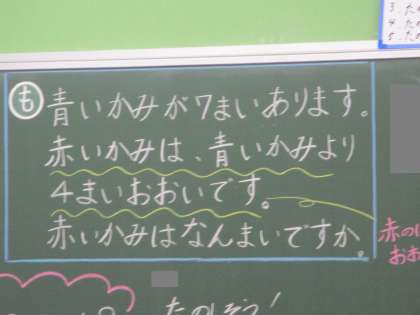 も
青いかみが7まいあります。
赤いかみは、青いかみより
4まいおおいです。
赤いかみはなんまいですか。
赤のに
おお
たのしそう!